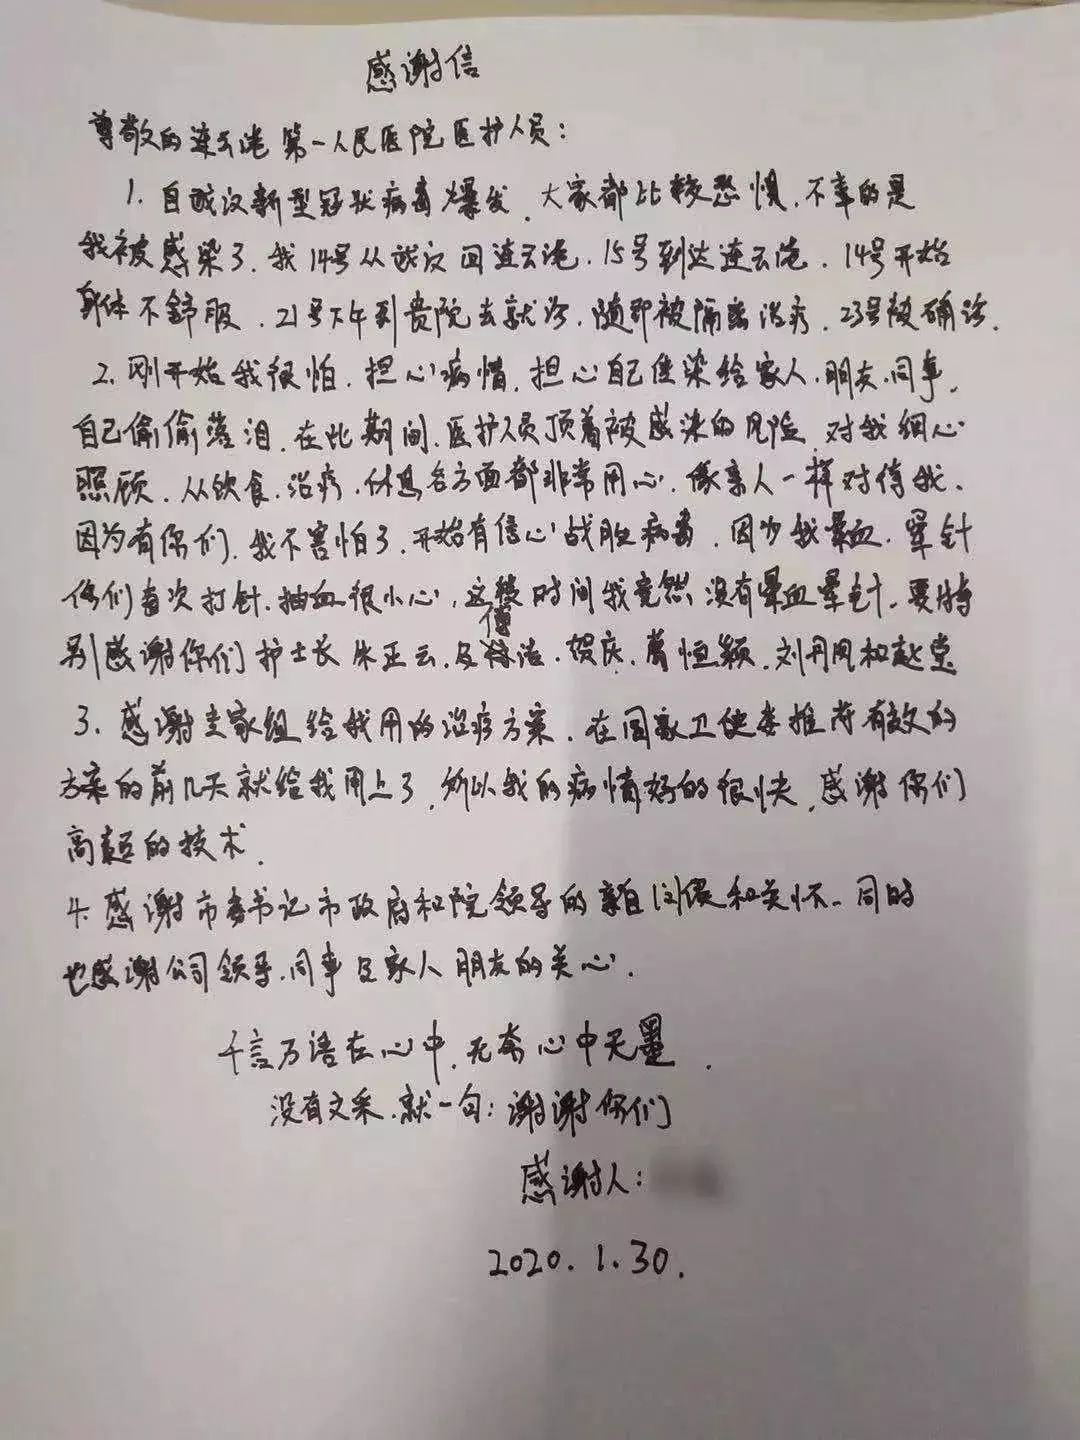 感谢信
尊敬的连云港第一人民医院医护人员：
1. 自武汉新型冠状病毒爆发，大家都比较恐惧，不幸的是
我被感染了，我14号从武汉回连云港，15号到达连云港，14号开始
身体不舒服，21号下午到贵院去就诊，随即被隔离治疗，23号被确诊，
2. 刚开始我很怕，担心病情，担心自己传染给家人，朋友，同事，
自己偷偷落泪，在此期间，医护人员顶着被感染的风险，对我细心
照顾，从饮食，治疗，休息各方面都非常用心，像亲人一样对待我，
因为有你们，我不害怕了，开始有信心战胜病毒，因为我晕血，晕针
你们每次打针，抽血很小心，这段时间我竟然没有晕血晕针，要特
别感谢你们护士长朱正云，及傅洁，贺庆，蒋恒颖，刘丹凤和赵莹
3. 感谢专家组给我用的治疗方案，在国家卫健委推荐有效的
方案的前几天就给我用上了，所以我的病情好的很快，感谢你们
高超的技术，
4. 感谢市委书记市政府和院领导的亲自问候和关怀，同时
也感谢公司领导，同事及家人朋友的关心，
千言万语在心中，无奈心中无墨，
没有文采，就一句：谢谢你们
感谢人：
2020.1.30.